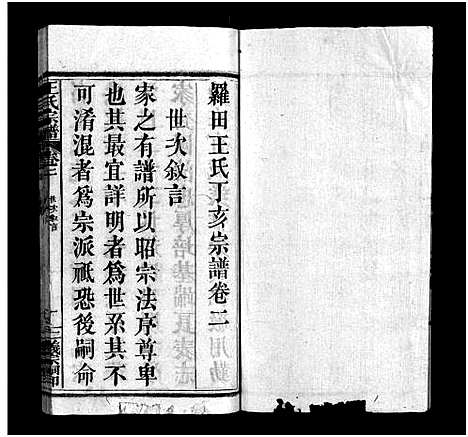 羅田王氏丁亥宗譜卷二
世次敘言
家之有譜所以昭宗法序尊卑
也其最宜詳明者爲世系其不
可淆混者爲宗派祇恐後嗣命
王氏宗譜
卷二
世次敘言